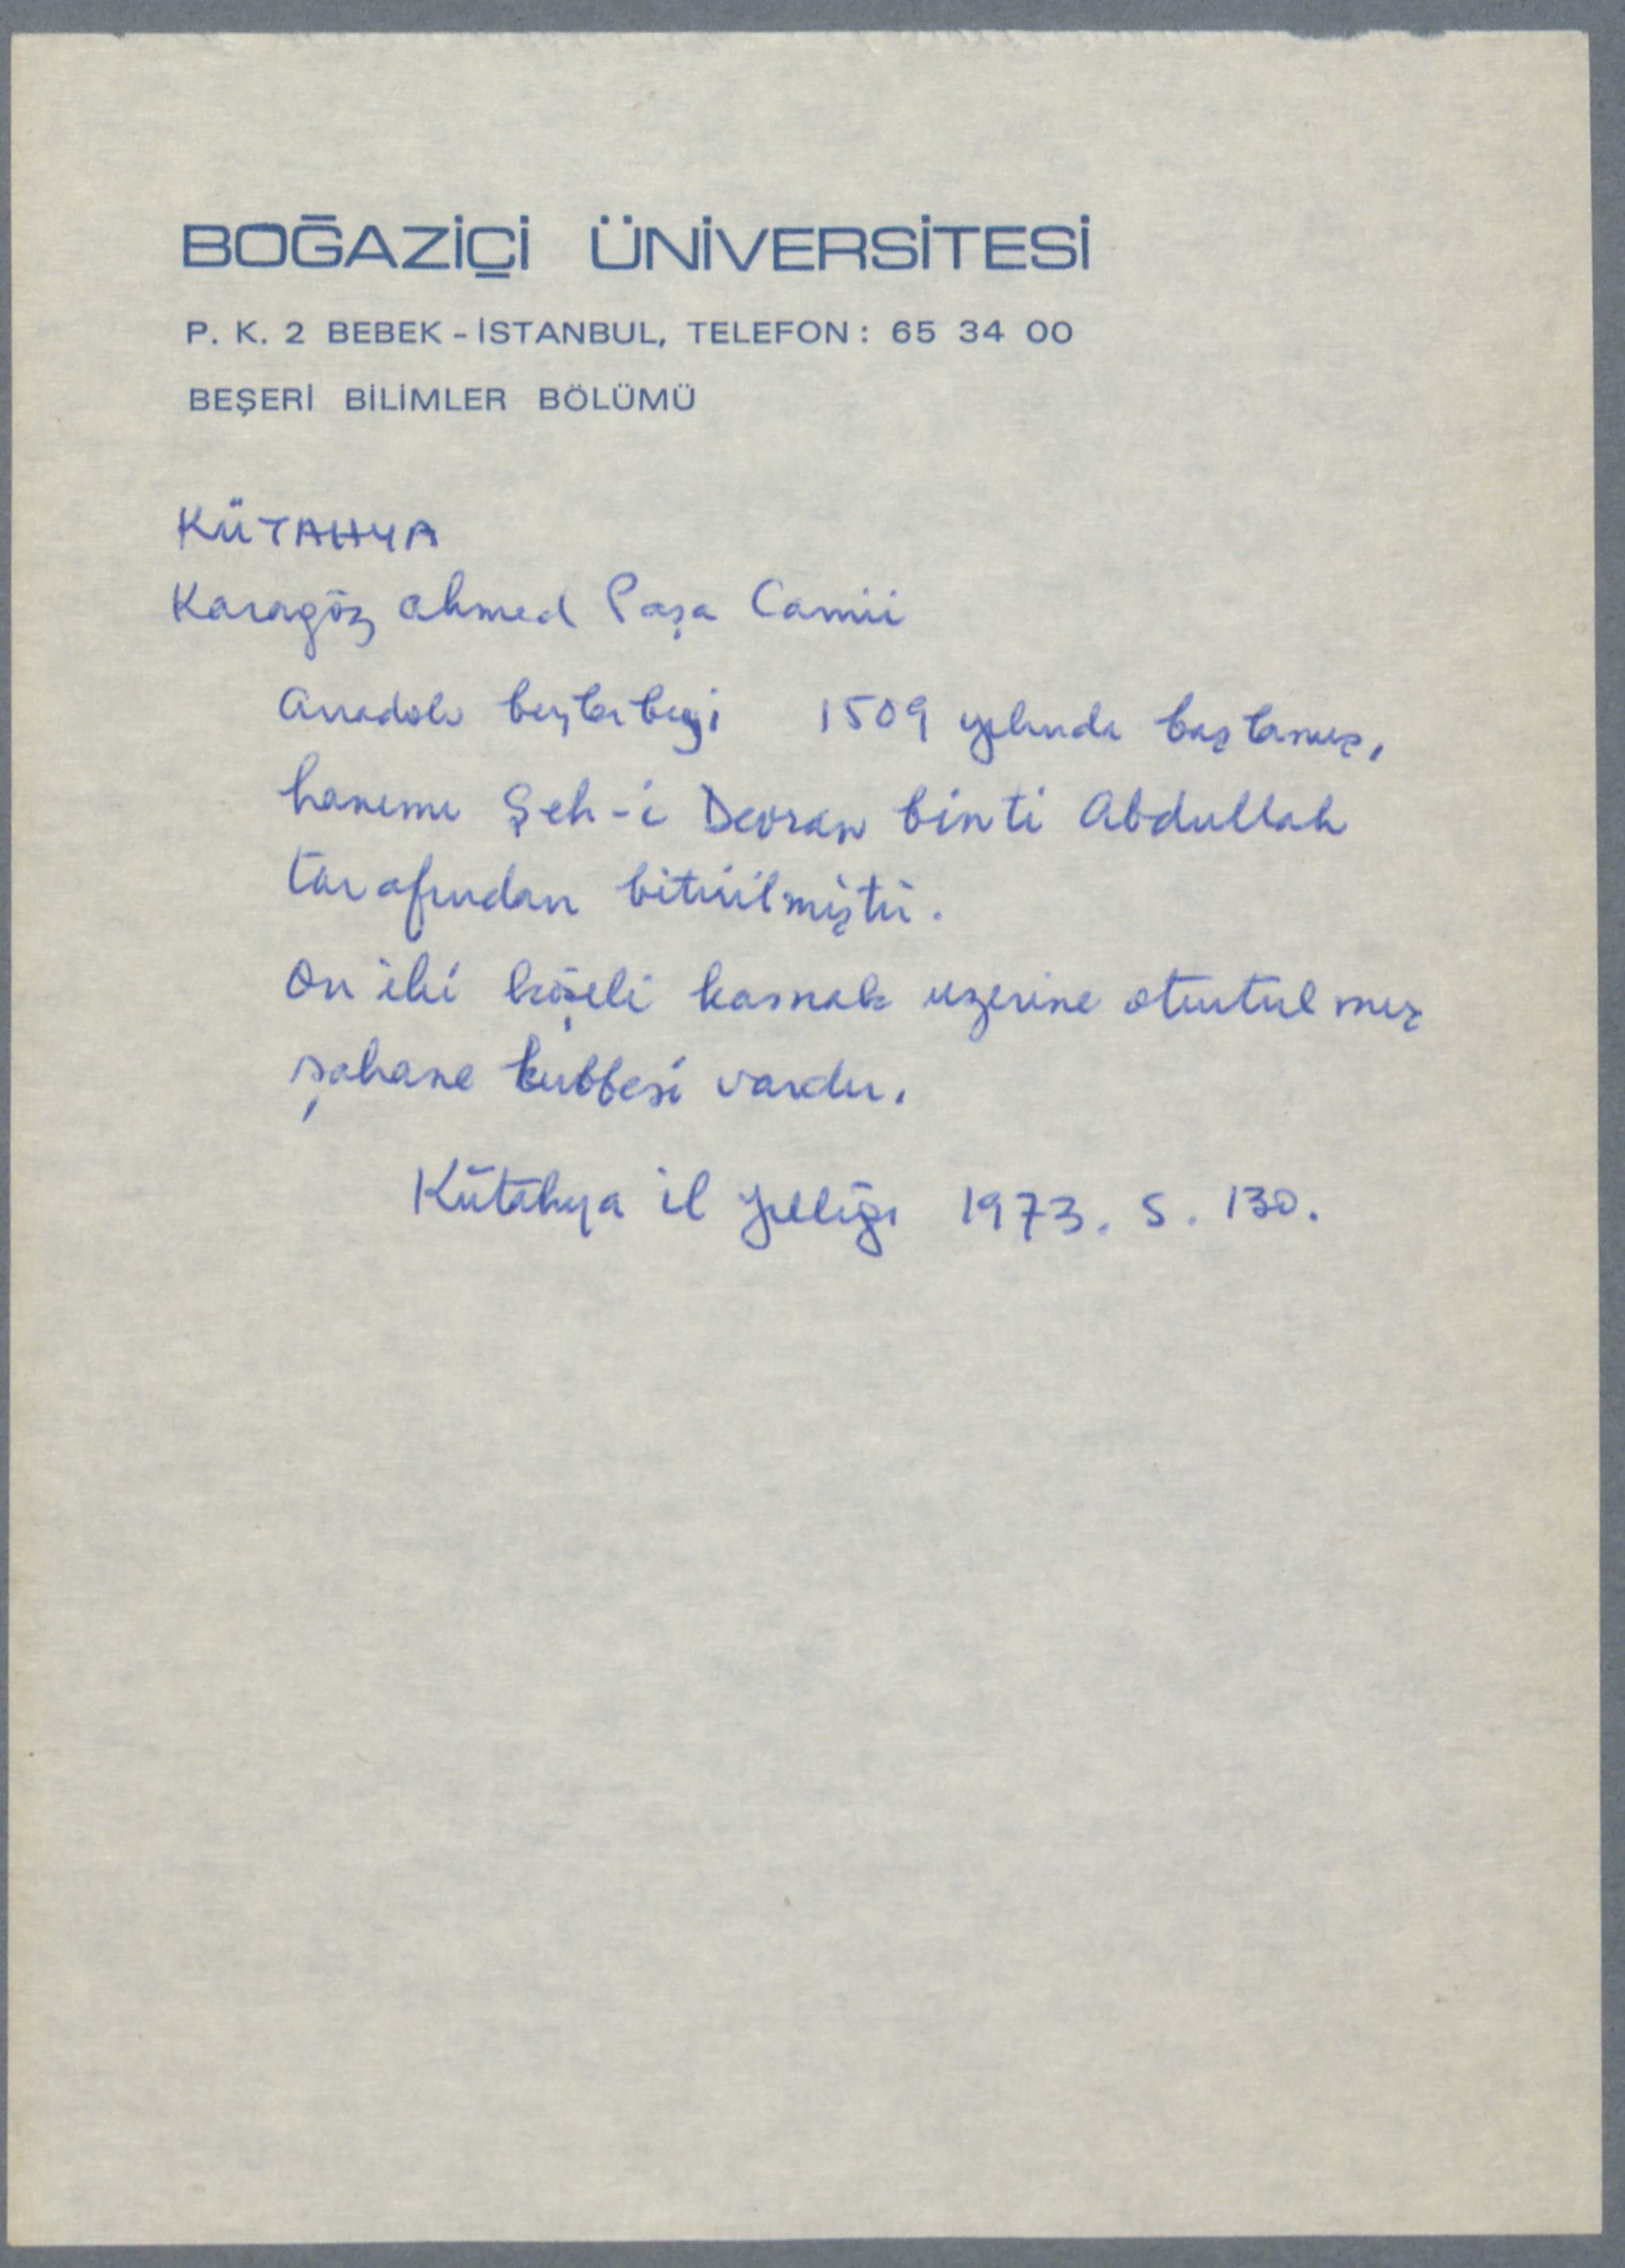 BOĞAZİÇİ ÜNİVERSİTESİ
P. K. 2 BEBEK - İSTANBUL, TELEFON : 65 34 00
BEŞERİ BİLİMLER BÖLÜMÜ
KÜTAHYA
Karagöz Ahmed Paşa Camii
Anadolu beylerbeyi 1509 yılında başlamış,
hanımı Şeh-i Devran binti Abdullah
tarafından bitirilmiştir.
On iki köşeli kasnak üzerine oturtulmuş
şahane kubbesi vardır.
Kütahya il Yıllığı 1973. S. 130.